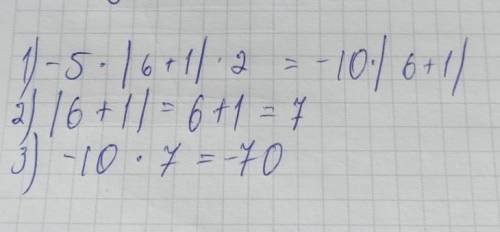 1) -5 · |6+1| · 2 = -10 · |6+1|
2) |6+1| = 6+1 = 7
3) -10 · 7 = -70